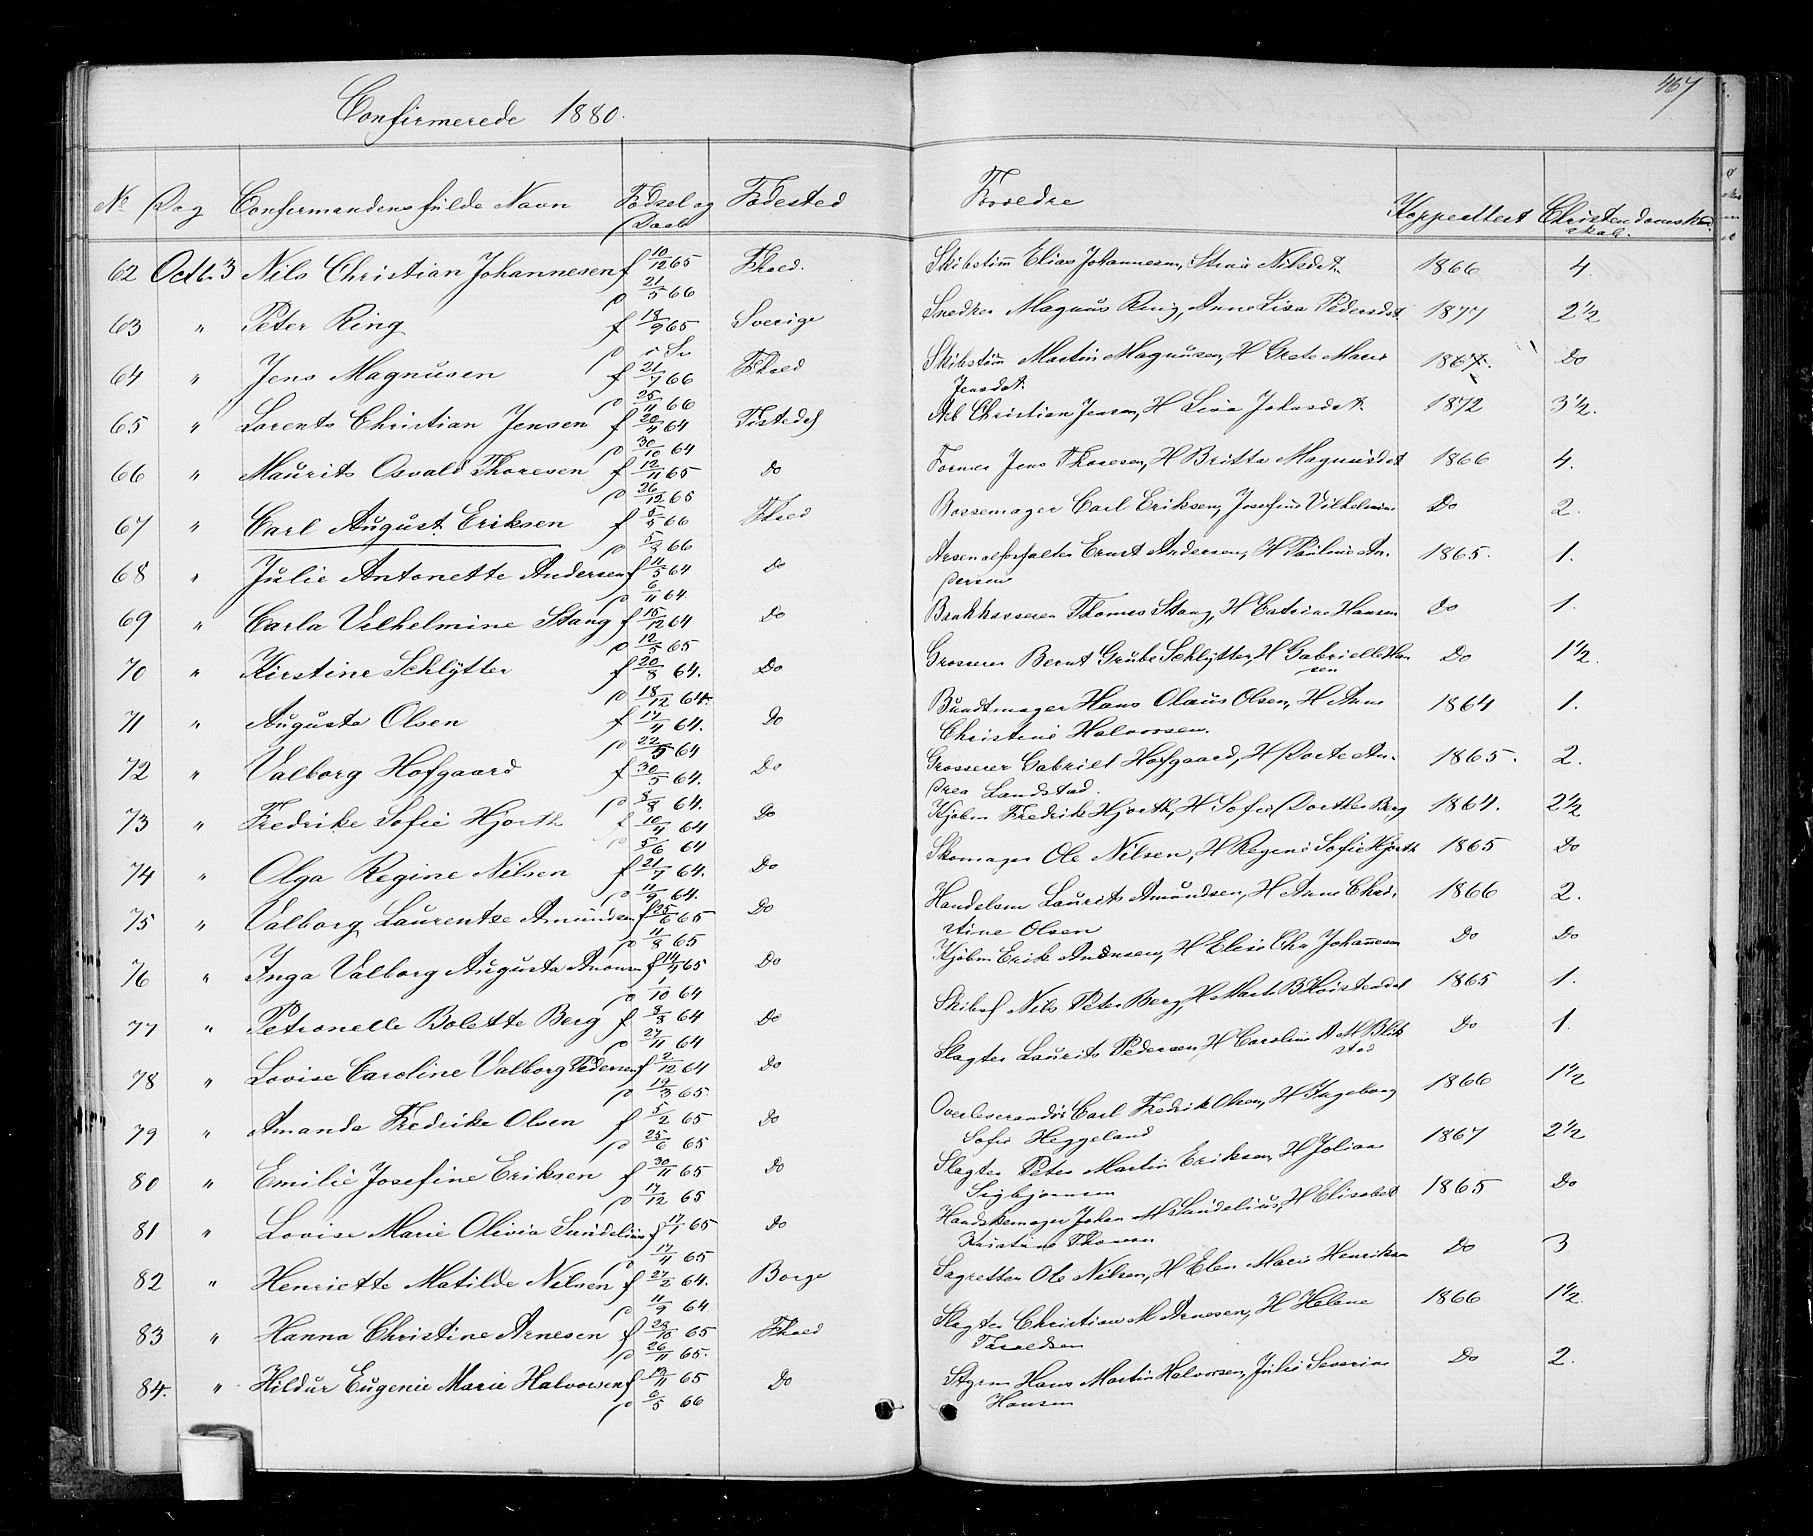 Confirmerede 1880.
467
No Dag Confirmandens fulde Navn Fødsel og Daab Fødested Forældre Koppeattest Christendomskundskab.
62 Octb. 3 Nils Christian Johannesen f 10/12 65 Fhald. Skibstim Elias Johannesen, Stina Nilsdat. 1866 4.
D 21/5 66
63 " Peter Ring f 18/9 65 Sverige Snedker Magnus Ring, Anne Lisa Pedersdat 1877 2 1/2
D i Sv
64 " Jens Magnusen f 21/7 66 Fhald Skibstim Martin Magnusen, H Grete Marie 1867. Do
D 25/11 66 Jensdat.
65 " Lorents Christian Jensen f 20/4 64 Tistedal Arb Christian Jensen, H Lisa Johnsdat. 1872 3 1/2.
D 30/10 64
66 " Maurits Osvald Thoresen f 12/11 65 Do Former Jens Thoresen, H Britta Magnusdat 1866 4.
D 26/12 65
67 " Carl August Eriksen f 5/5 66 Fhald Bossemager Carl Eriksen, Josefine Vilhelmine Do 2.
D 5/8 66
68 " Julie Antonette Andersen f 11/5 64 Do Arsenalforvalter Ernst Andersen, H Pauline An- 1865. 1.
D 6/11 64 dersen
69 " Carla Vilhelmine Stang f 15/12 64 Do Brukkasserer Thomas Stang, H Catrine Hansen Do 1.
D 12/5 65
70 " Kirstine Schlytter f 20/8 64. Do Grosserer Bernt Grube Schlytter, H Gabrielle Han Do 1 1/2.
D 18/12 64. sen
71 " Augusta Olsen f 17/4 64. Do Bundtmager Hans Olaus Olsen, H Anne 1864 1.
D 22/5 64 Christine Halvorsen.
72 " Valborg Hofgaard f 30/5 64. Do Grosserer Gabriel Hofgaard, H Dorte An- 1865. 2.
D 8/8 64. drea Landstad.
73 " Fredrike Sofie Hjorth f 10/4 64 Do Kjøbm Fredrik Hjorth, H Sofie Dorthea Berg 1864. 2 1/2
D 5/6 64
74 " Olga Regine Nilsen f 21/7 64. Do Skomager Ole Nilsen, H Regine Sofie Hjorth 1865 Do
D 11/9 64.
75 " Valborg Laurentze Amundsen f 25/6 65 Do Handelsm Laurits Amundsen, H Anne Chri- 1866 2.
D 11/8 65 stine Olsen
76 " Inga Valborg Augusta f 14/4 65 Do Kjøbm Erik H Elise Cha Johannesen Do Do
D 1/10 64
77 " Petronelle Bolette Berg f 3/3 64 Do Skibsf Nils Peter Berg, H Marte B 1865 1.
D 27/11 64
78 " Lovise Caroline Valborg Pedersen f 2/12 64 Do Slagter Laurits Pedersen, H Caroline A M Blik Do 1.
D 19/3 65. stad
79 " Amanda Fredrike Olsen f 5/2 65 Do Carl Fredrik Olsen, H Ingeborg 1866 1 1/2
D 25/6 65 Sofie Heggeland
80 " Emilie Josefine Eriksen f 30/11 65 Do Slagter Peter Martin Eriksen, H Joliane 1867 2 1/2
D 17/12 65 Sigbjørnsen
81 " Lovise Marie Olivia Sundelius f 17/1 65 Do Handskemager Johan M Sundelius, H Elisabet 1865 Do
D 17/4 65 Kristine Thoresen
82 " Henriette Matilde Nilsen f 27/2 64. Borge Ole Nilsen, H Elen Marie Henriksen Do 3
D 11/9 64
83 " Hanna Christine Arnesen f 28/10 65 Fhald Slagter Christian M Arnesen, H Helene 1866 1 1/2.
D 26/11 65. Taraldsen
84. " Hildur Eugenie Marie Halvorsen f 13/11 65 Do Styrm Hans Martin Halvorsen, Julie Severine Do 2.
D 6/5 66 Hansen